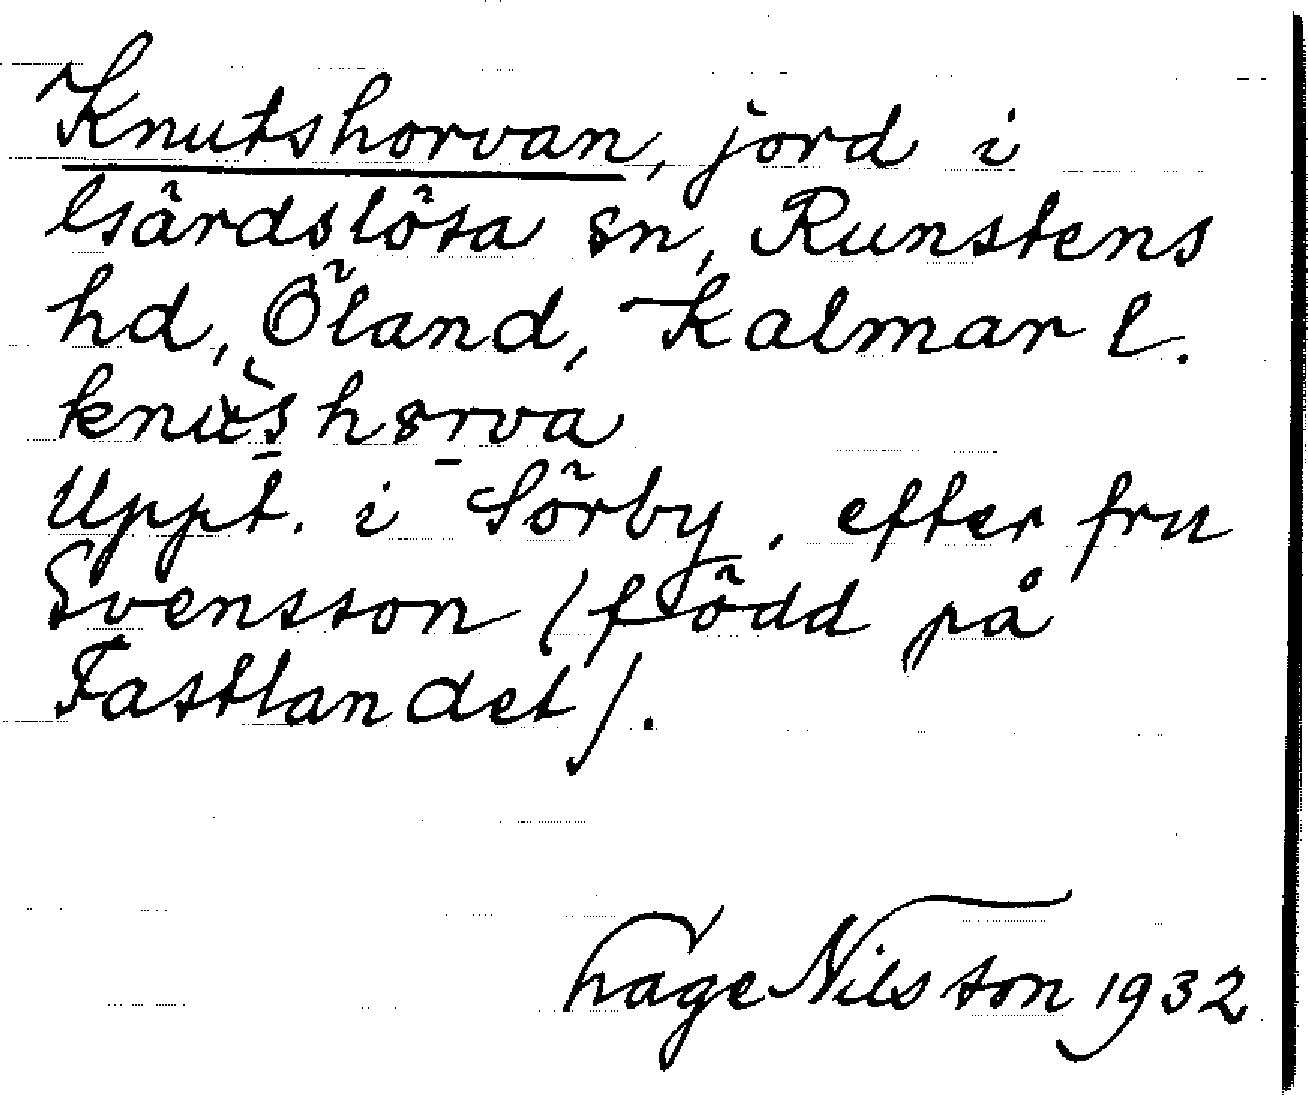 Knutshorvan, jord i
Gärdslösa sn, Runstens
hd, Öland, Kalmar l.
Uppt. i Sörby, efter fru
Svensson (född på
Fastlandet).
Hage Nilsson 1932